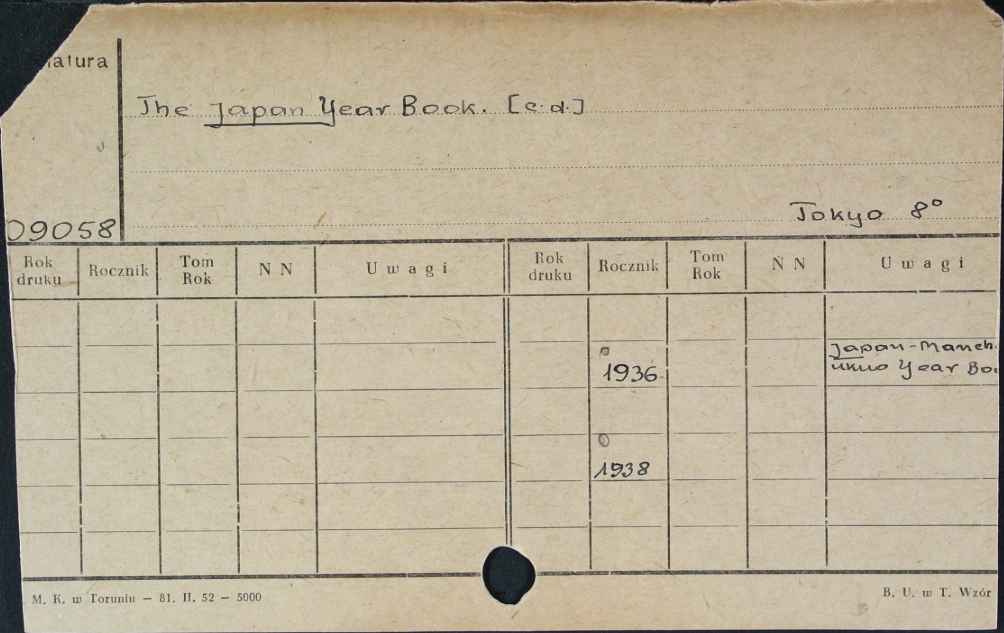 natura
The Japan Year Book. [c.d.]
Tokyo 8°
09058
Rok druku Rocznik Tom Rok N N Uwagi Rok druku Rocznik Tom Rok N N Uwagi
1936 Japan-Manch.
ukuo Year Bo
1938
M. K. w Toruniu — 81. II. 52 — 5000 B. U. w T. Wzór